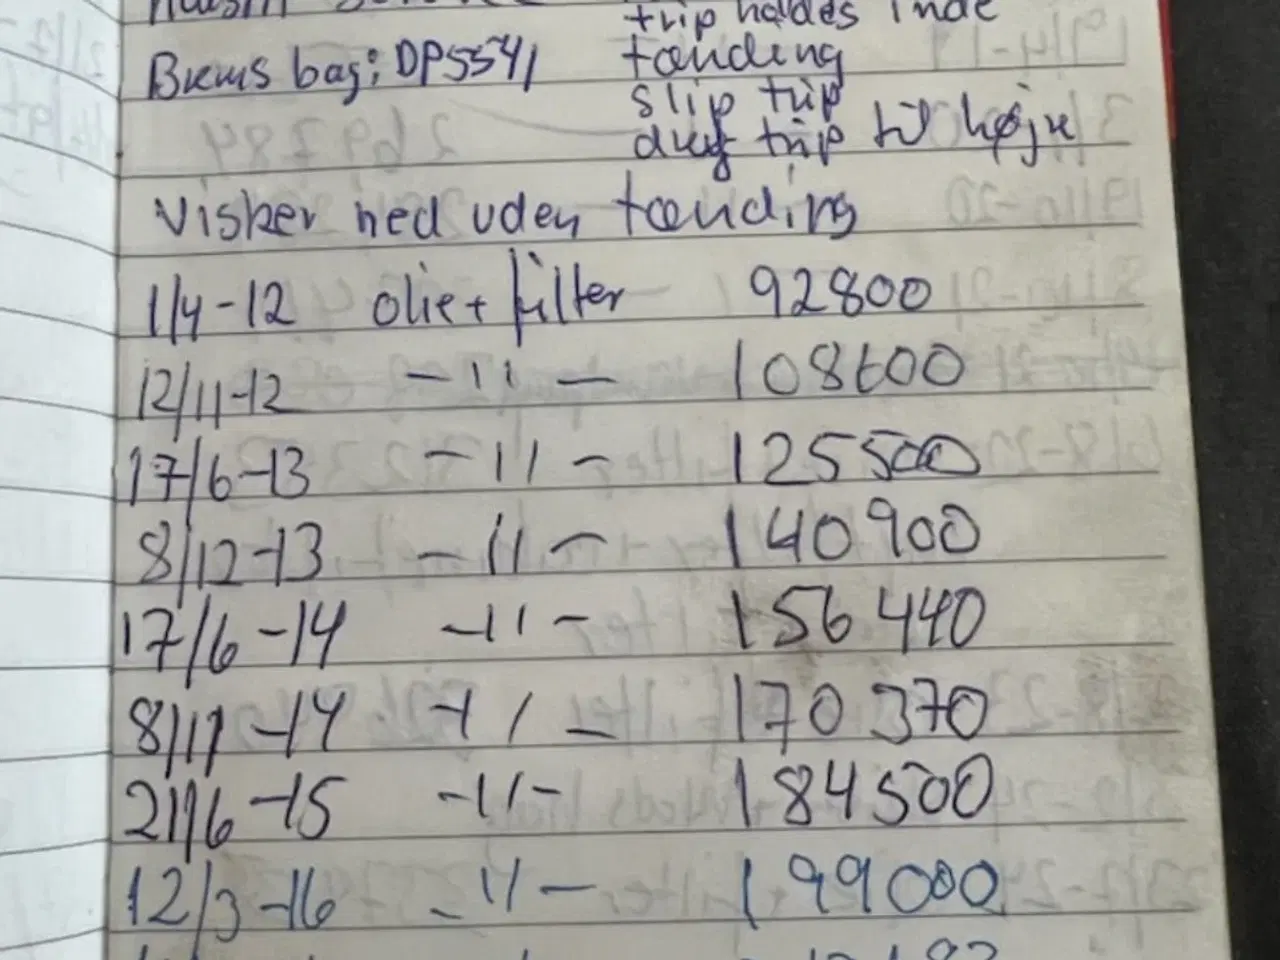 trip holdes inde
Brems bag: DP5541 tænding
slip trip
drej trip til højre
Visker ned uden tænding
1/4-12 olie + filter 92800
12/11-12 -11- 108600
17/6-13 -11- 125500
8/12-13 -11- 140900
17/6-14 -11- 156440
8/11-14 -11- 170370
21/6-15 -11- 184500
12/3-16 -11- 199000